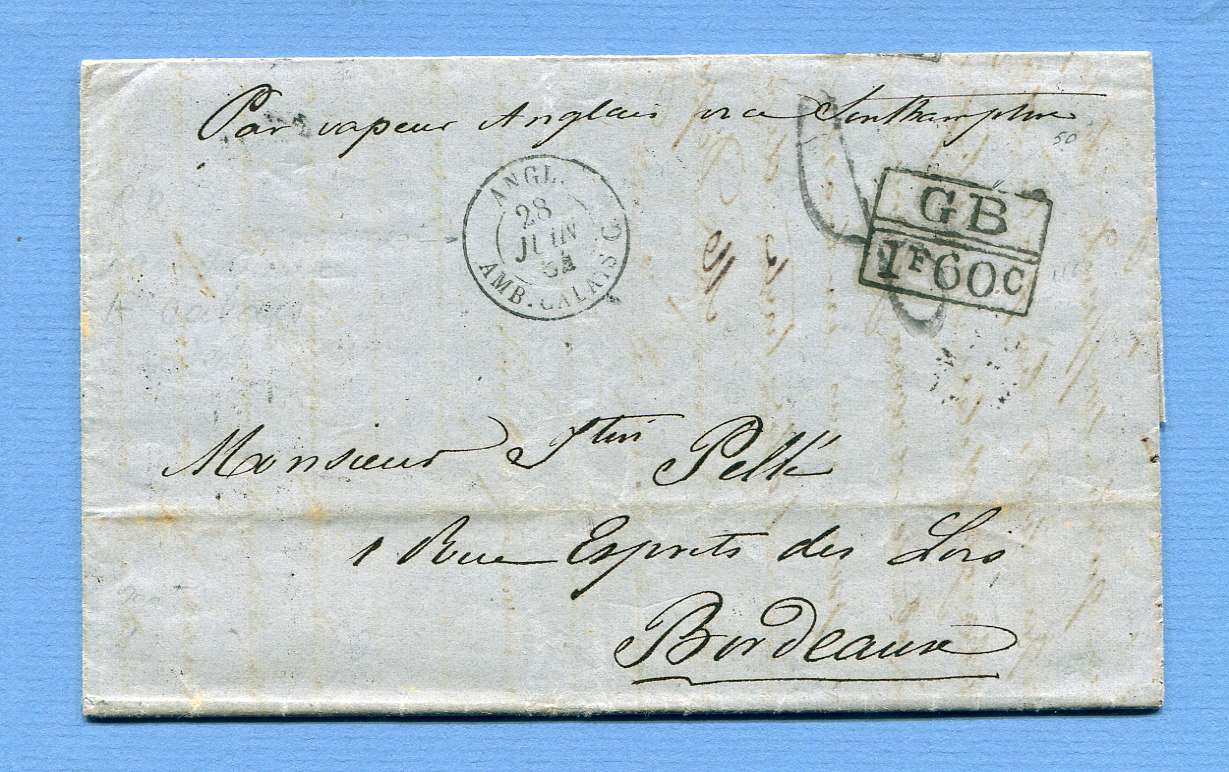 Par vapeur Anglais via Southampton
50
ANGL.
28
JUIN
64
AMB. CALAIS C
GB
1F60C
Monsieur
1 Rue Esprits des Lois
Bordeaux